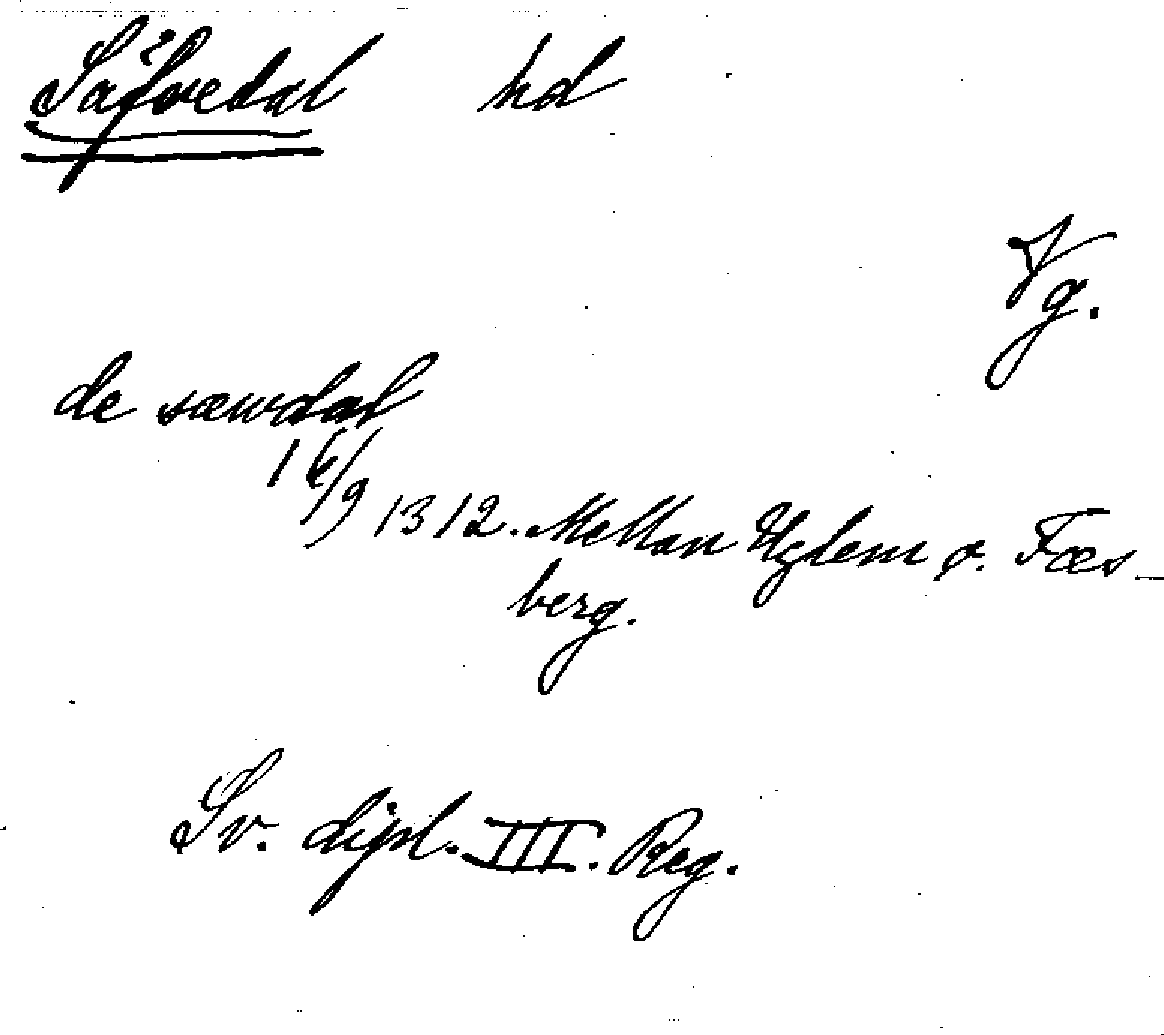 Säfvedal hd
Vg.
de sæwdal
16/9 1312. Mellan Hglem o. Fæs-
berg.
Sv. dipl. III. Reg.